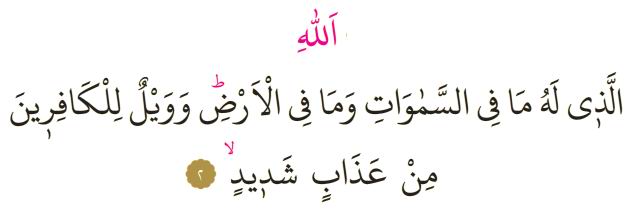 اَللّٰهِ
الَّذ۪ى لَهُ مَا فِى السَّمٰوَاتِ وَمَا فِى الْاَرْضِۜ وَوَيْلٌ لِلْكَافِر۪ينَ
مِنْ عَذَابٍ شَد۪يدٍۙ ﴿٢﴾